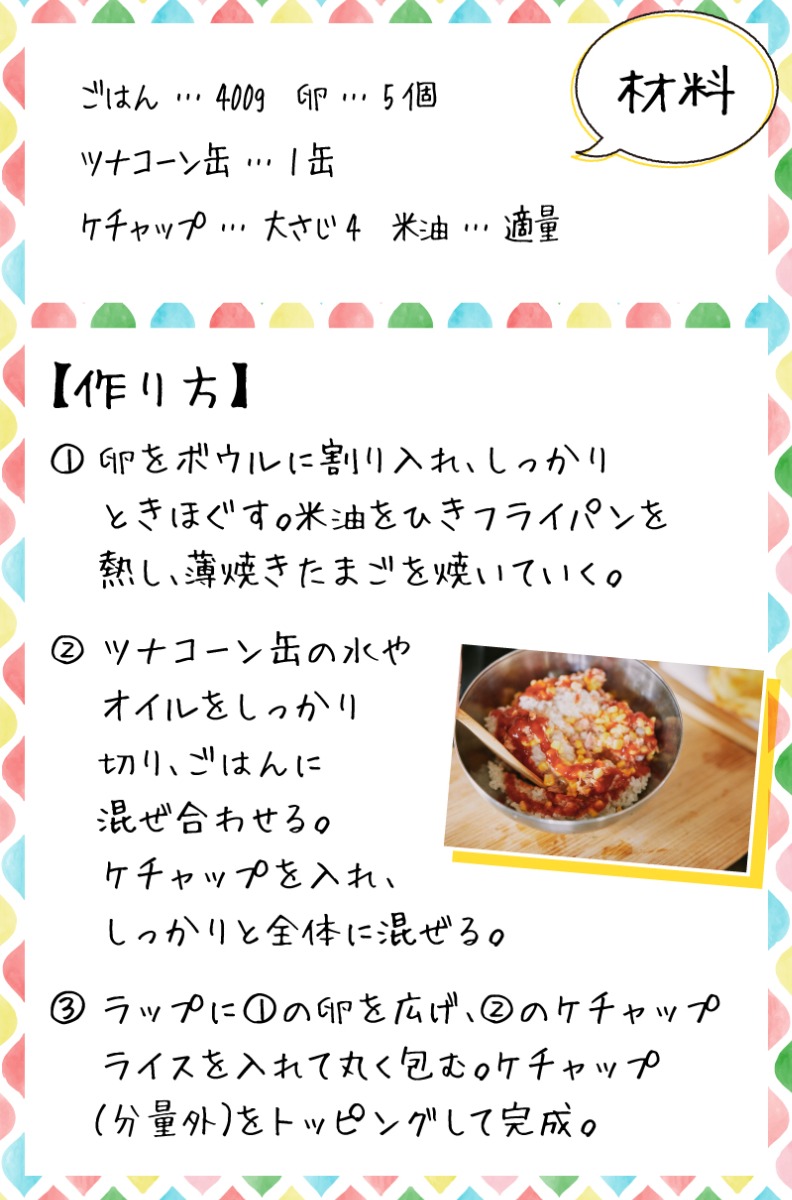 材料
ごはん … 400g　卵 … 5個
ツナコーン缶 … 1缶
ケチャップ … 大さじ4　米油 … 適量
【作り方】
① 卵をボウルに割り入れ、しっかり
ときほぐす。米油をひきフライパンを
熱し、薄焼きたまごを焼いていく。
② ツナコーン缶の水や
オイルをしっかり
切り、ごはんに
混ぜ合わせる。
ケチャップを入れ、
しっかりと全体に混ぜる。
③ ラップに①の卵を広げ、②のケチャップ
ライスを入れて丸く包む。ケチャップ
(分量外)をトッピングして完成。